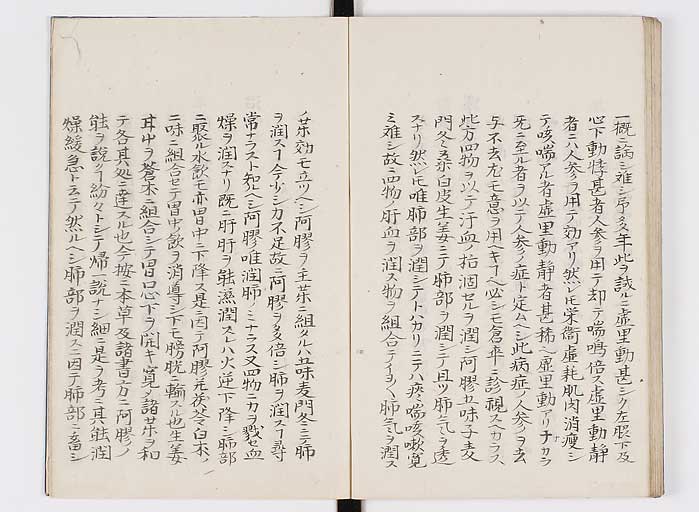 一概ニ論シ難シ予多年此ヲ試ルニ虚里動甚シク左脹下及
心下動悸甚者人参ヲ用テ却テ喘鳴倍ス虚里動静
者ニハ人参ヲ用テ効アリ然レ𪜈栄衛虚耗肌肉消痩シ
テ咳喘アル者虚里動静者甚稀ヘ虚里動アリナカラ
死ニ至ル者ヲ以テ人参ノ症ト定ムヘシ此病症ノ人参ヲ去
与不去尤モ意ヲ用ヘキヿヘ必シモ倉卒ニ診視スヘカラス
此方四物ヲ以テ汗血ノ枯涸セルヲ潤シ阿膠五味子麦
門冬桑白皮生姜ニテ肺部ヲ潤シ且ツ肺気ヲ透
スナリ然レ𪜈唯肺部ヲ潤シテトハカリニテハ痰喘咳嗽寛
ミ難シ故ニ四物ノ肝血ヲ潤ス物ヲ組合テイヨイヨ肺気ヲ潤ス
ノ薬効モ立ツヘシ阿膠ヲ主薬ニ組タルハ五味麦門冬ニテ肺
ヲ潤スヿ今少シカ不足故ニ阿膠ヲ多倍シ肺ヲ潤スヿ尋
常ナラスト知ヘシ阿膠唯潤肺ノミナラス又四物ニカヲ戮血
燥ヲ潤スナリ既ニ肝肝ヲ能濡潤スレハ火逆下降シ肺部
ニ聚ル水飲モ亦胃中ニ下降ス是ニ因テ阿膠茯苓白朮ノ
二味ニ組合セテ胃中ノ飲ヲ消導シ下モ膀胱ニ輸スル也生姜
耳中ヲ蒼朮ニ組合シテ胃口心下ヲ開キ寛メ諸薬ヲ和
テ各其処ニ達スル也今按ニ本草及諸書方ニ阿膠ノ
能ヲ説クヿ紛々トシテ帰一説ナシ細ニ是ヲ考ニ其能潤
燥緩急ト云テ然ルヘシ肺部ヲ潤スニ因テ肺部ニ畜シ